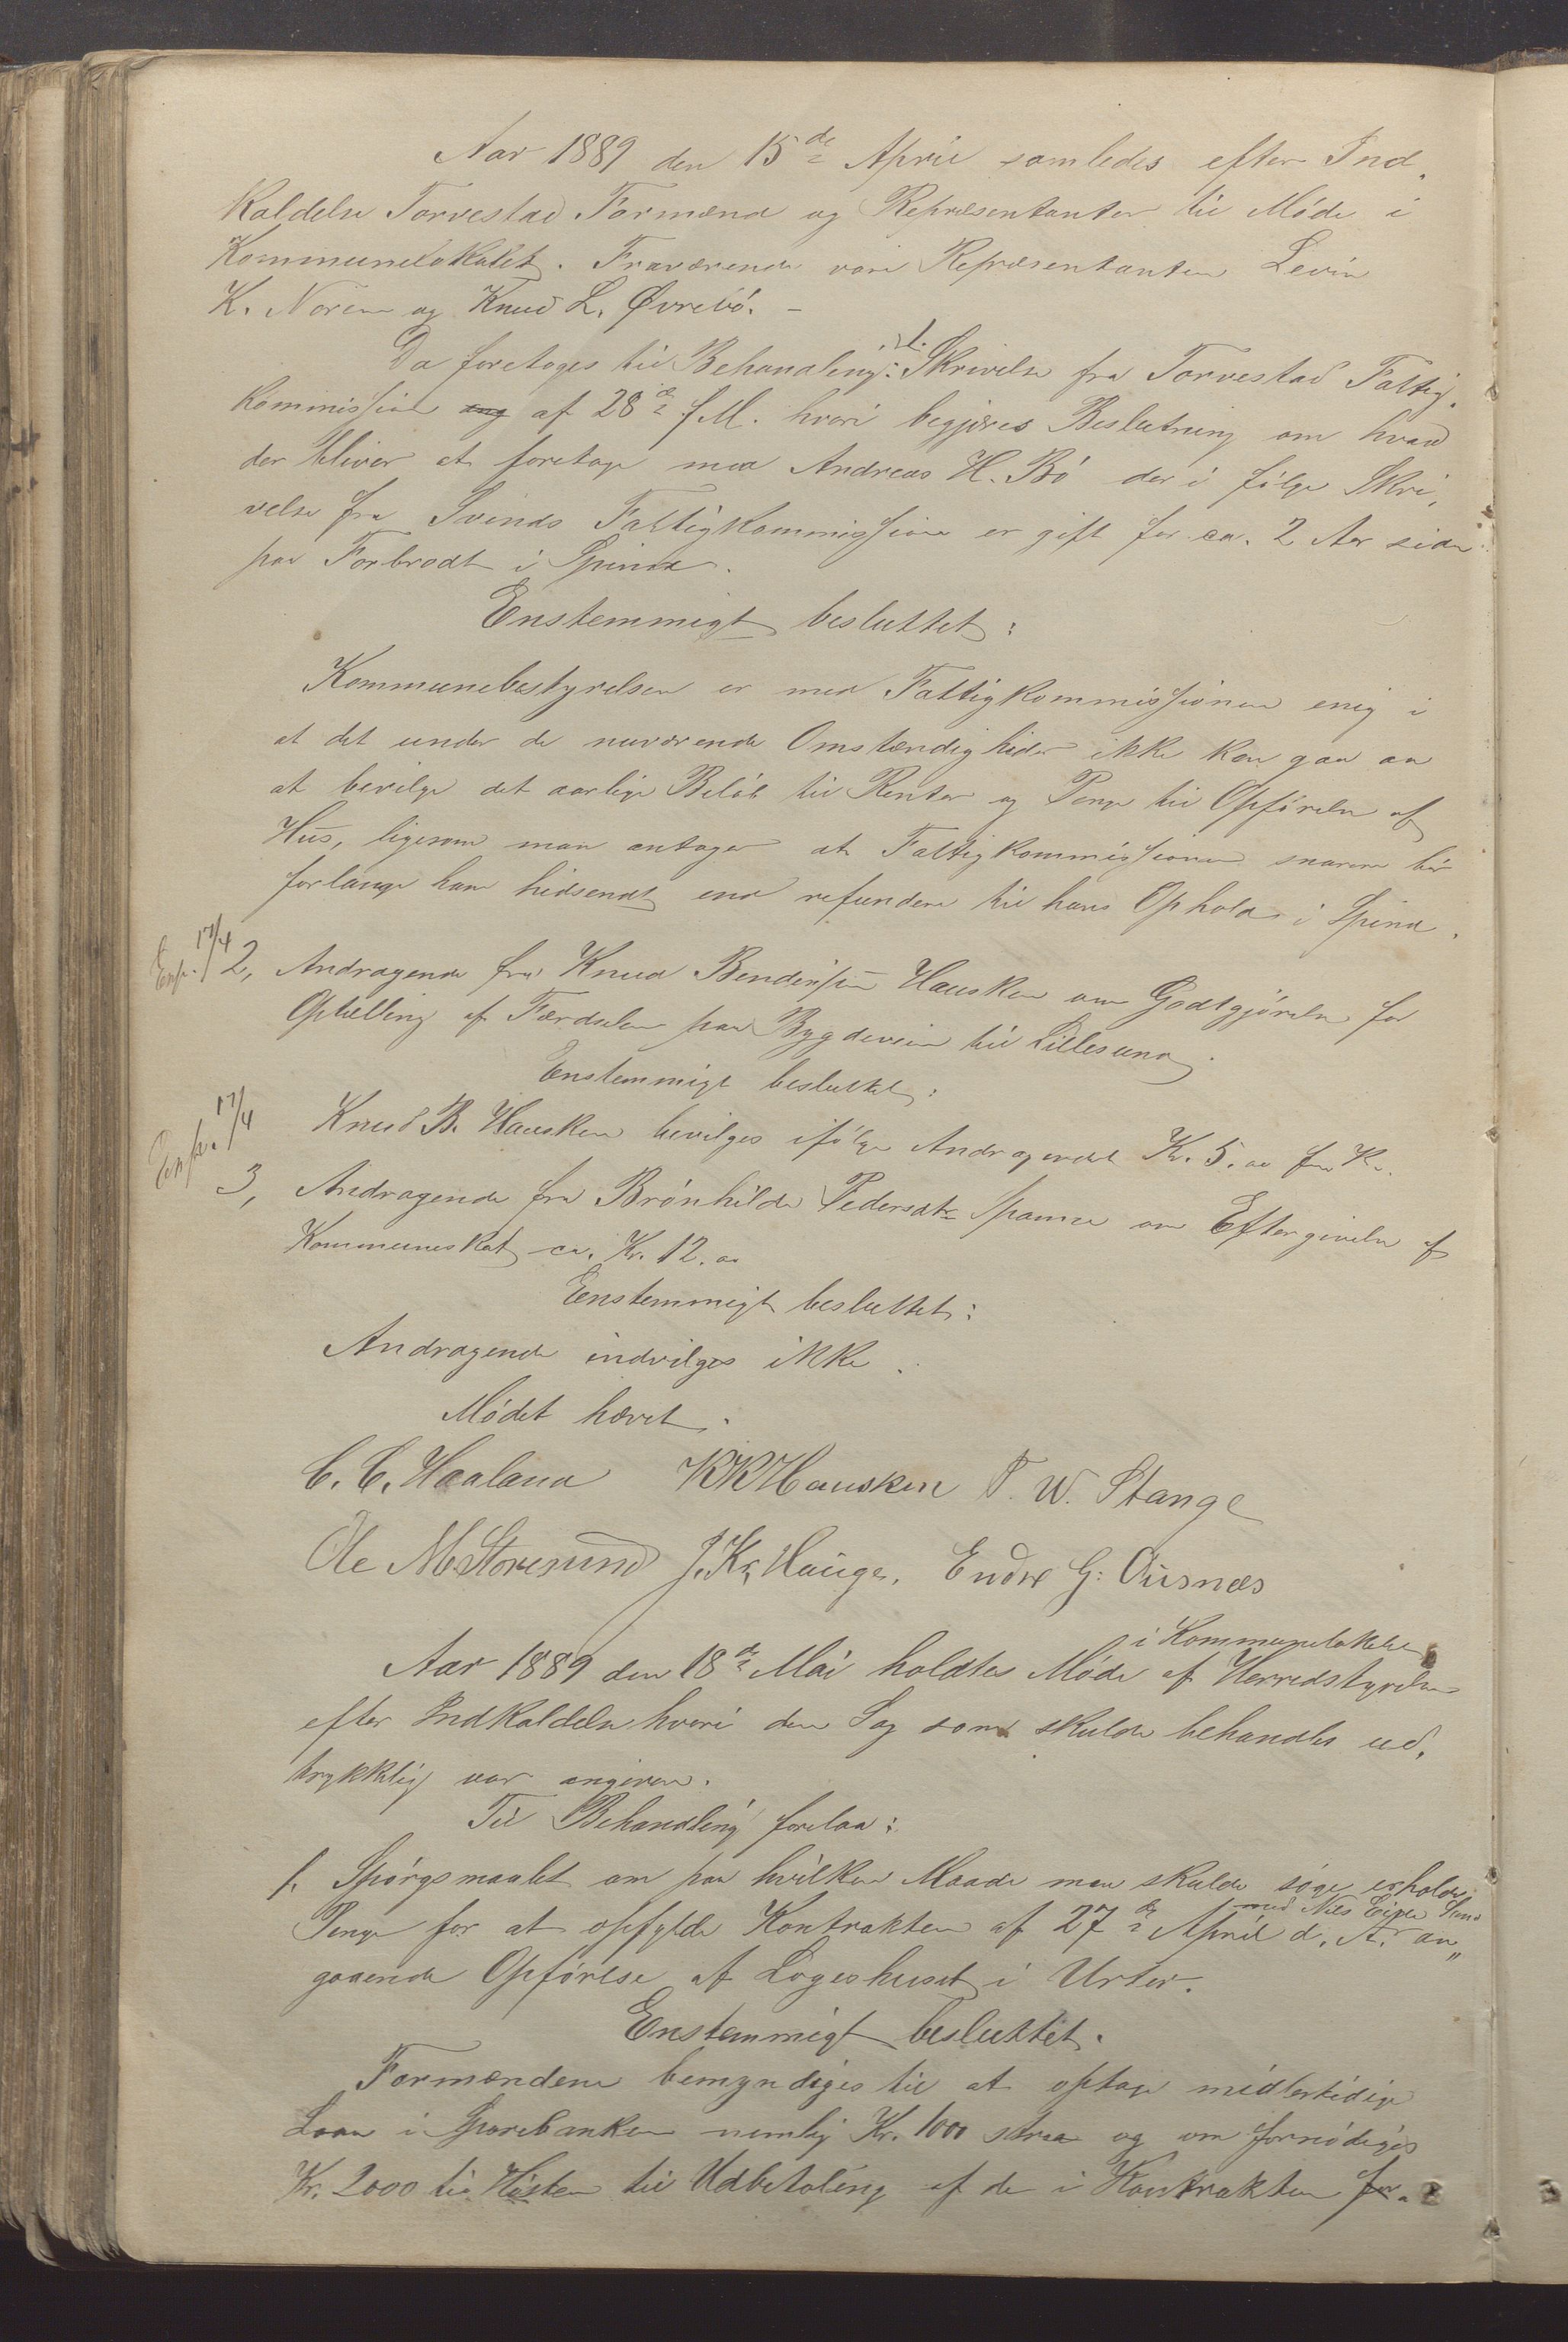 Aar 1889 den 15de April samledes efter Ind,
kaldelse Torvestad Formænd og Repræsentanter til Møde i
Kommunelokalet. Fraværende vare Repræsentanten Levin
K. Norem og Knud L. Øvrebö. –
Da foretoges til Behandling: 1. Skrivelse fra Torvestad Fattig,
kommission af 28de f.M. hvori begjæres Beslutning om hvad
der bliver at foretage med Andreas H. Bö der i følge Skri,
velse fra Svinds Fattigkommission er gift for ca. 2 Aar siden
paa Forbrodt i Spind.
Enstemmigt besluttet:
Kommunebestyrelsen er med Fattigkommissionen enig i
at det under de nuværende Omstændigheder ikke kan gaa an
at bevilge det aarlige Beløb til Renter og Penge til Opførelse af
Hus, ligesom man antager at Fattigkommissionen snarere bør
forlange ham hidsendt end refundere til hans Ophold i Spind.
Exp. 17/4 2, Andragende fra Knud Bendixsen Hausken om Godtgjørelse for
Optælling af Færdselen paa Bygdeveien til Lillesund.
Enstemmigt besluttet:
Exp. 17/4 Knud B. Hausken bevilges ifølge Andragendet Kr. 5.00 fem Kr.
3, Andragende fra Brönhilde Pedersdtr Spanne om Eftergivelse af
Kommuneskat ca. Kr. 12.00
Enstemmigt besluttet:
Andragende indvilges ikke.
Mødet hævet.
C. C. Haaland KKHausken T. W. Stange
Ole M. Storesund J. Kr. Hauge. Endre G. Ousnæs
i Kommunelokalet
Aar 1889 den 18de Mai holdtes Møde af Herredstyrelsen
efter Indkaldelse hvori den Sag som skulde behandles ud,
trykkelig var angiven.
Til Behandling forelaa:
1. Spörgsmaalet om paa hvilken Maade man skulde søge erholde
med Nils Eipe Sund
Penge for at opfylde Kontrakten af 27de April d. A. an„
gaaende Opførelse af Lægeshuset i Urter.
Enstemmigt besluttet.
Formændene bemyndiges til at optage midlertidige
Laan i Sparebanken nemlig Kr. 1000 strax og om fornødiges
Kr. 2000 til Høsten til Udbetaling af de i Kontrakten for.